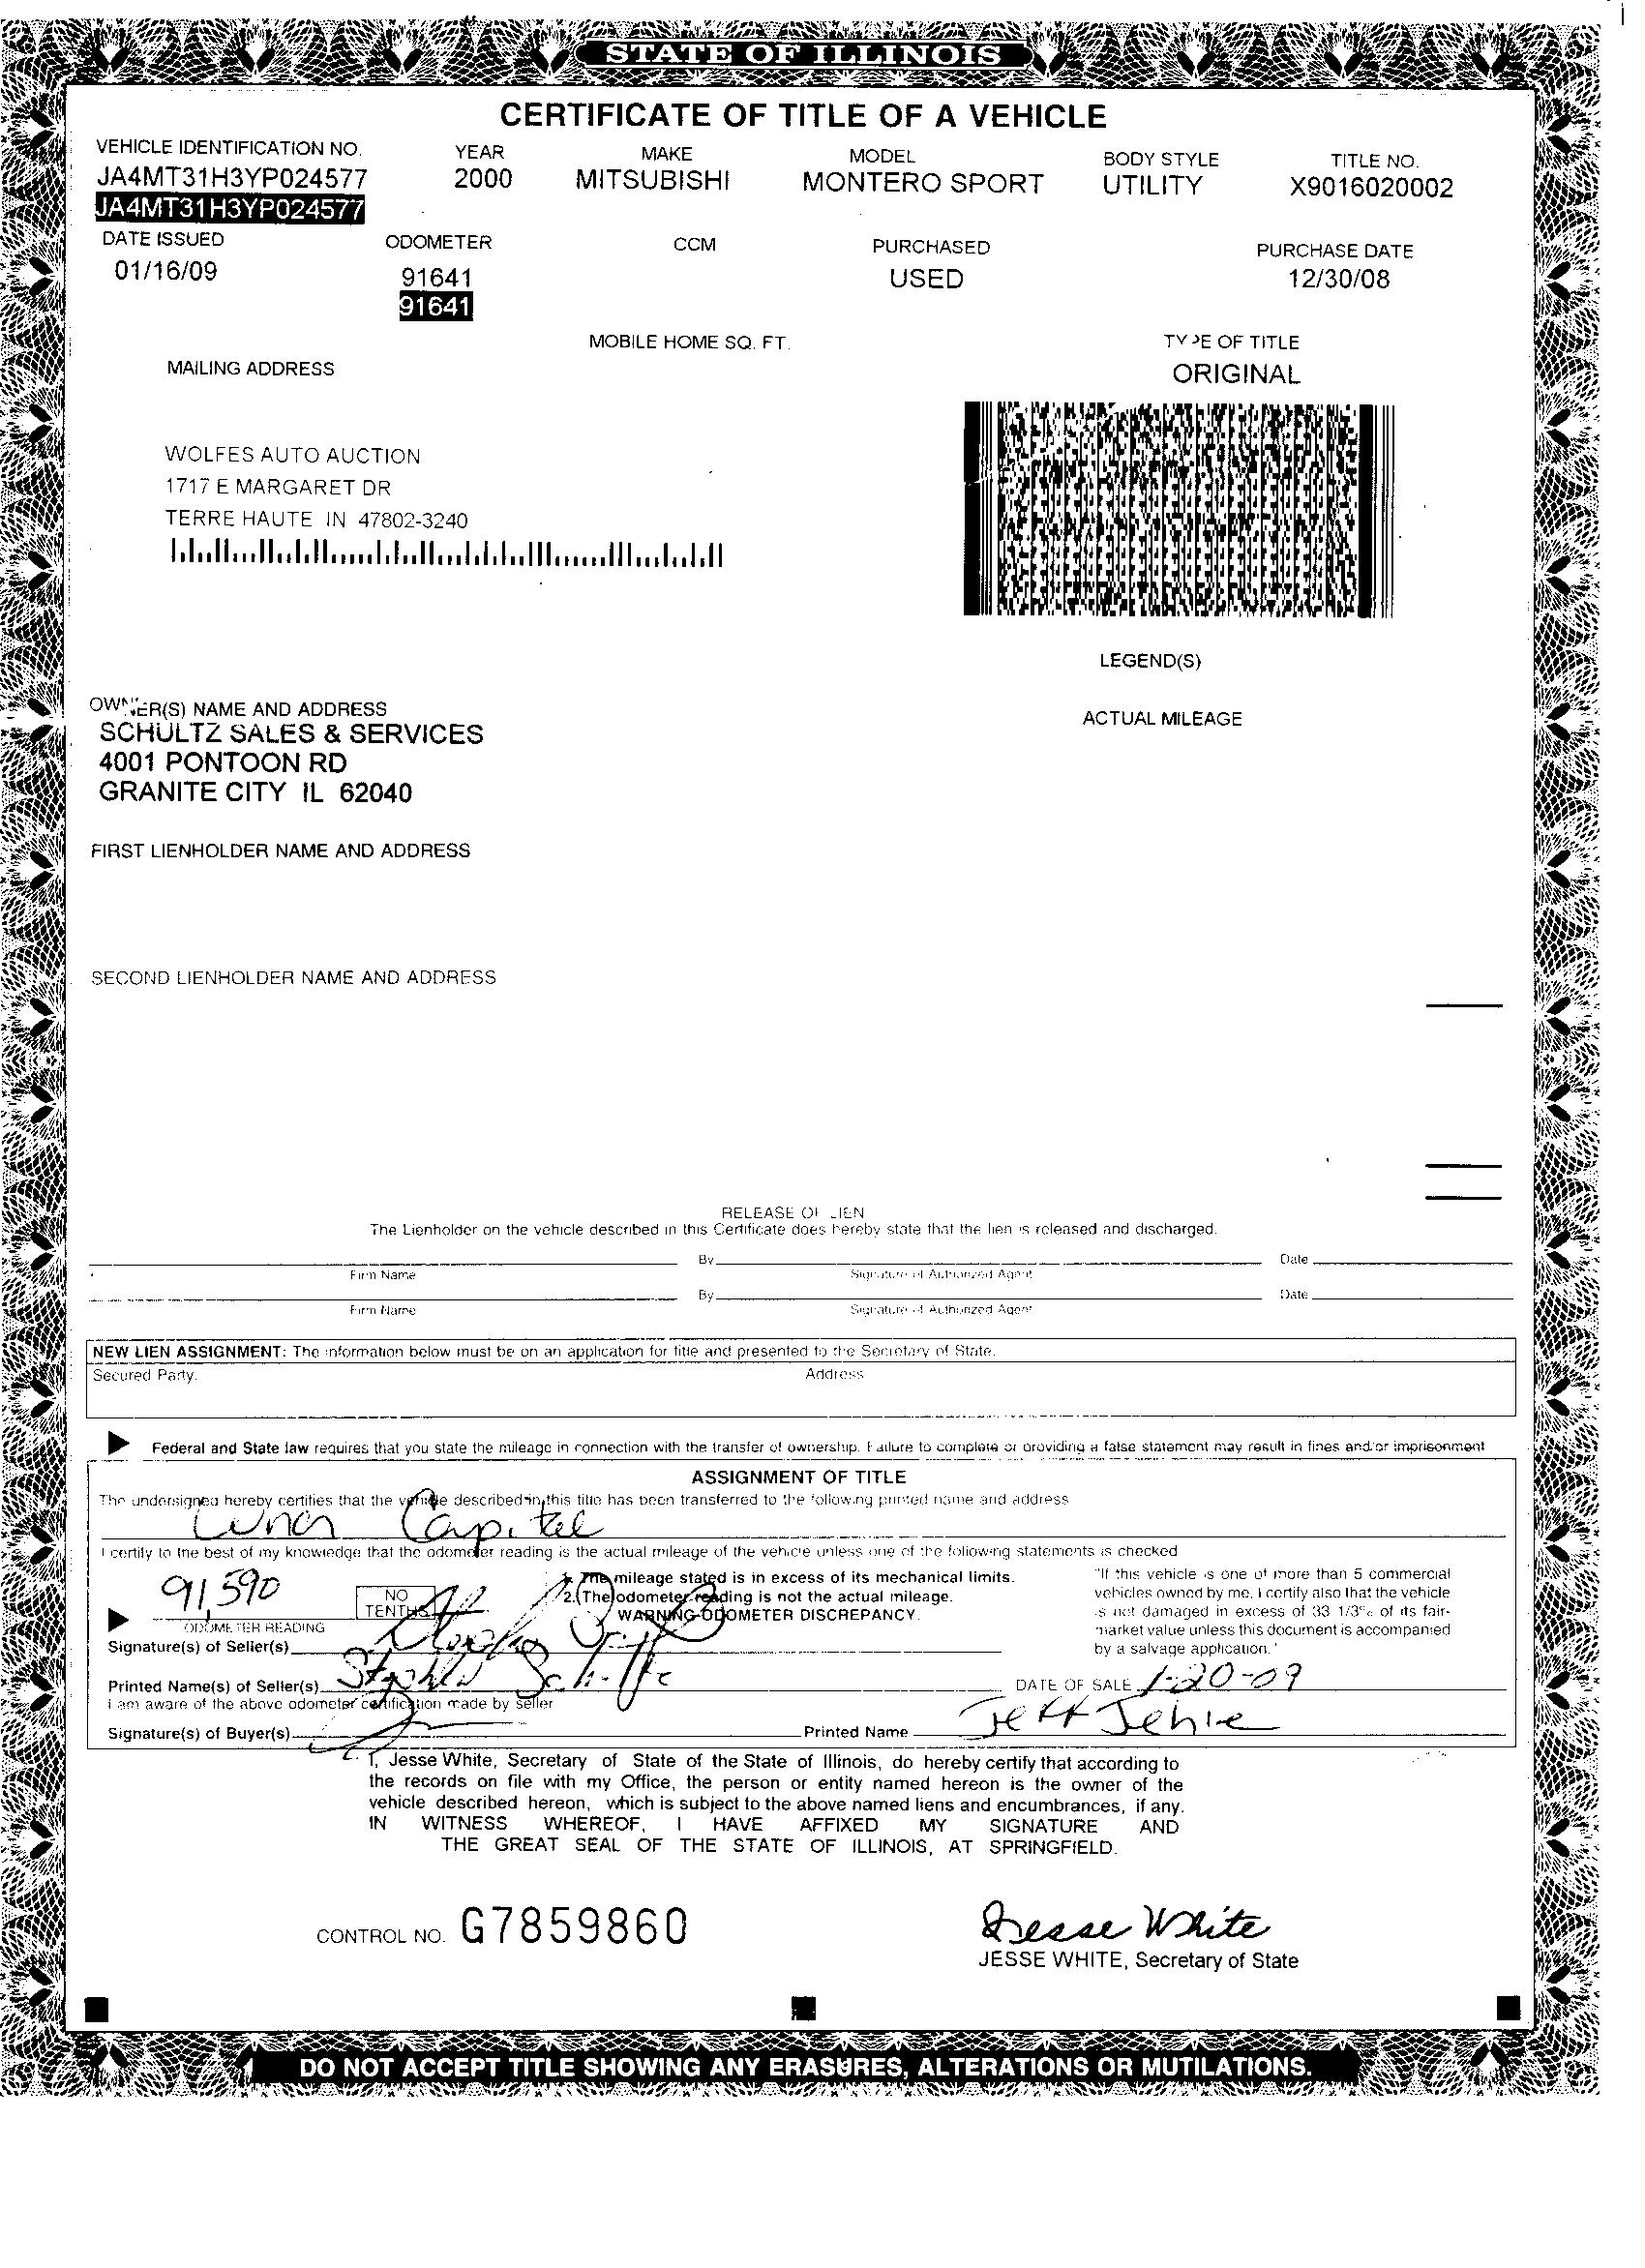 STATE OF ILLINOIS
CERTIFICATE OF TITLE OF A VEHICLE
VEHICLE IDENTIFICATION NO. YEAR MAKE MODEL BODY STYLE TITLE NO.
JA4MT31H3YP024577 2000 MITSUBISHI MONTERO SPORT UTILITY X9016020002
JA4MT31H3YP024577
DATE ISSUED ODOMETER CCM PURCHASED PURCHASE DATE
01/16/09 91641 USED 12/30/08
91641
MOBILE HOME SQ. FT. TYPE OF TITLE
MAILING ADDRESS ORIGINAL
WOLFES AUTO AUCTION
1717 E MARGARET DR
TERRE HAUTE IN 47802-3240
LEGEND(S)
OWNER(S) NAME AND ADDRESS
SCHULTZ SALES & SERVICES ACTUAL MILEAGE
4001 PONTOON RD
GRANITE CITY IL 62040
FIRST LIENHOLDER NAME AND ADDRESS
SECOND LIENHOLDER NAME AND ADDRESS
RELEASE OF LIEN
The Lienholder on the vehicle described in this Certificate does hereby state that the lien is released and discharged.
By Date
Firm Name Signature of Authorized Agent
By Date
Firm Name Signature of Authorized Agent
NEW LIEN ASSIGNMENT: The information below must be on an application for title and presented to the Secretary of State.
Secured Party. Address
Federal and State law requires that you state the mileage in connection with the transfer of ownership. Failure to complete or providing a false statement may result in fines and/or imprisonment
ASSIGNMENT OF TITLE
The undersigned hereby certifies that the vehicle described in this title has been transferred to the following printed name and address
Capital
I certify to the best of my knowledge that the odometer reading is the actual mileage of the vehicle unless one of the following statements is checked
91,590 NO TENTHS
1. The mileage stated is in excess of its mechanical limits.
2. The odometer reading is not the actual mileage.
WARNING-ODOMETER DISCREPANCY.
"If this vehicle is one of more than 5 commercial
vehicles owned by me, I certify also that the vehicle
is not damaged in excess of 33 1/3% of its fair-
market value unless this document is accompanied
by a salvage application."
ODOMETER READING
Signature(s) of Seller(s)
Printed Name(s) of Seller(s) DATE OF SALE 1-20-09
I am aware of the above odometer certification made by seller
Signature(s) of Buyer(s) Printed Name Jeff Jehle
I, Jesse White, Secretary of State of the State of Illinois, do hereby certify that according to
the records on file with my Office, the person or entity named hereon is the owner of the
vehicle described hereon, which is subject to the above named liens and encumbrances, if any.
IN WITNESS WHEREOF, I HAVE AFFIXED MY SIGNATURE AND
THE GREAT SEAL OF THE STATE OF ILLINOIS, AT SPRINGFIELD.
CONTROL NO. G7859860 Jesse White
JESSE WHITE, Secretary of State
DO NOT ACCEPT TITLE SHOWING ANY ERASURES, ALTERATIONS OR MUTILATIONS.